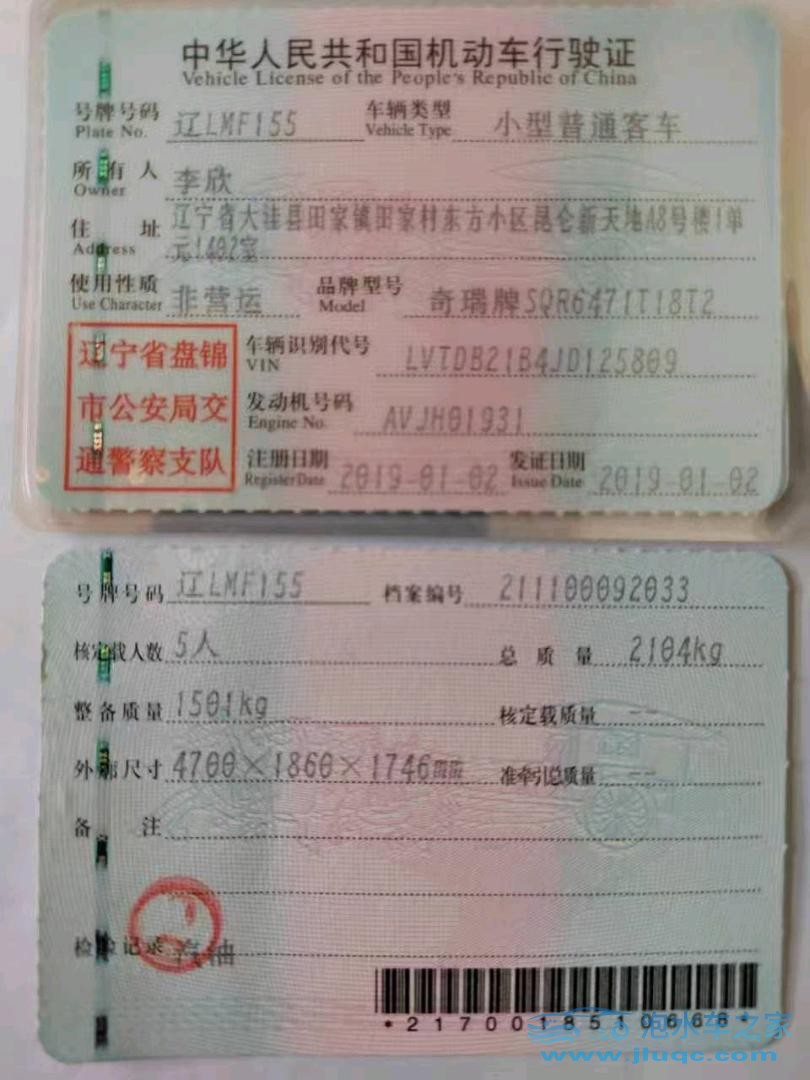 中华人民共和国机动车行驶证
Vehicle License of the People's Republic of China
号牌号码 辽LMF155 车辆类型 小型普通客车
Plate No. Vehicle Type
所有人 李欣
Owner
住址 辽宁省大洼县田家镇田家村东方小区昆仑新天地A8号楼1单
Address 元1402室
使用性质 非营运 品牌型号 奇瑞牌SQR6471T18T2
Use Character Model
辽宁省盘锦
市公安局交
通警察支队
车辆识别代号 LVTDB21B4JD125809
VIN
发动机号码 AVJH01931
Engine No.
注册日期 2019-01-02 发证日期 2019-01-02
Register Date Issue Date
号牌号码 辽LMF155 档案编号 211100092033
核定载人数 5人 总质量 2104kg
整备质量 1501kg 核定载质量 --
外廓尺寸 4700×1860×1746mm 准牵引总质量 --
备注
检验记录 汽油
*2170018510666*
泡水车之家
www.jluqc.com